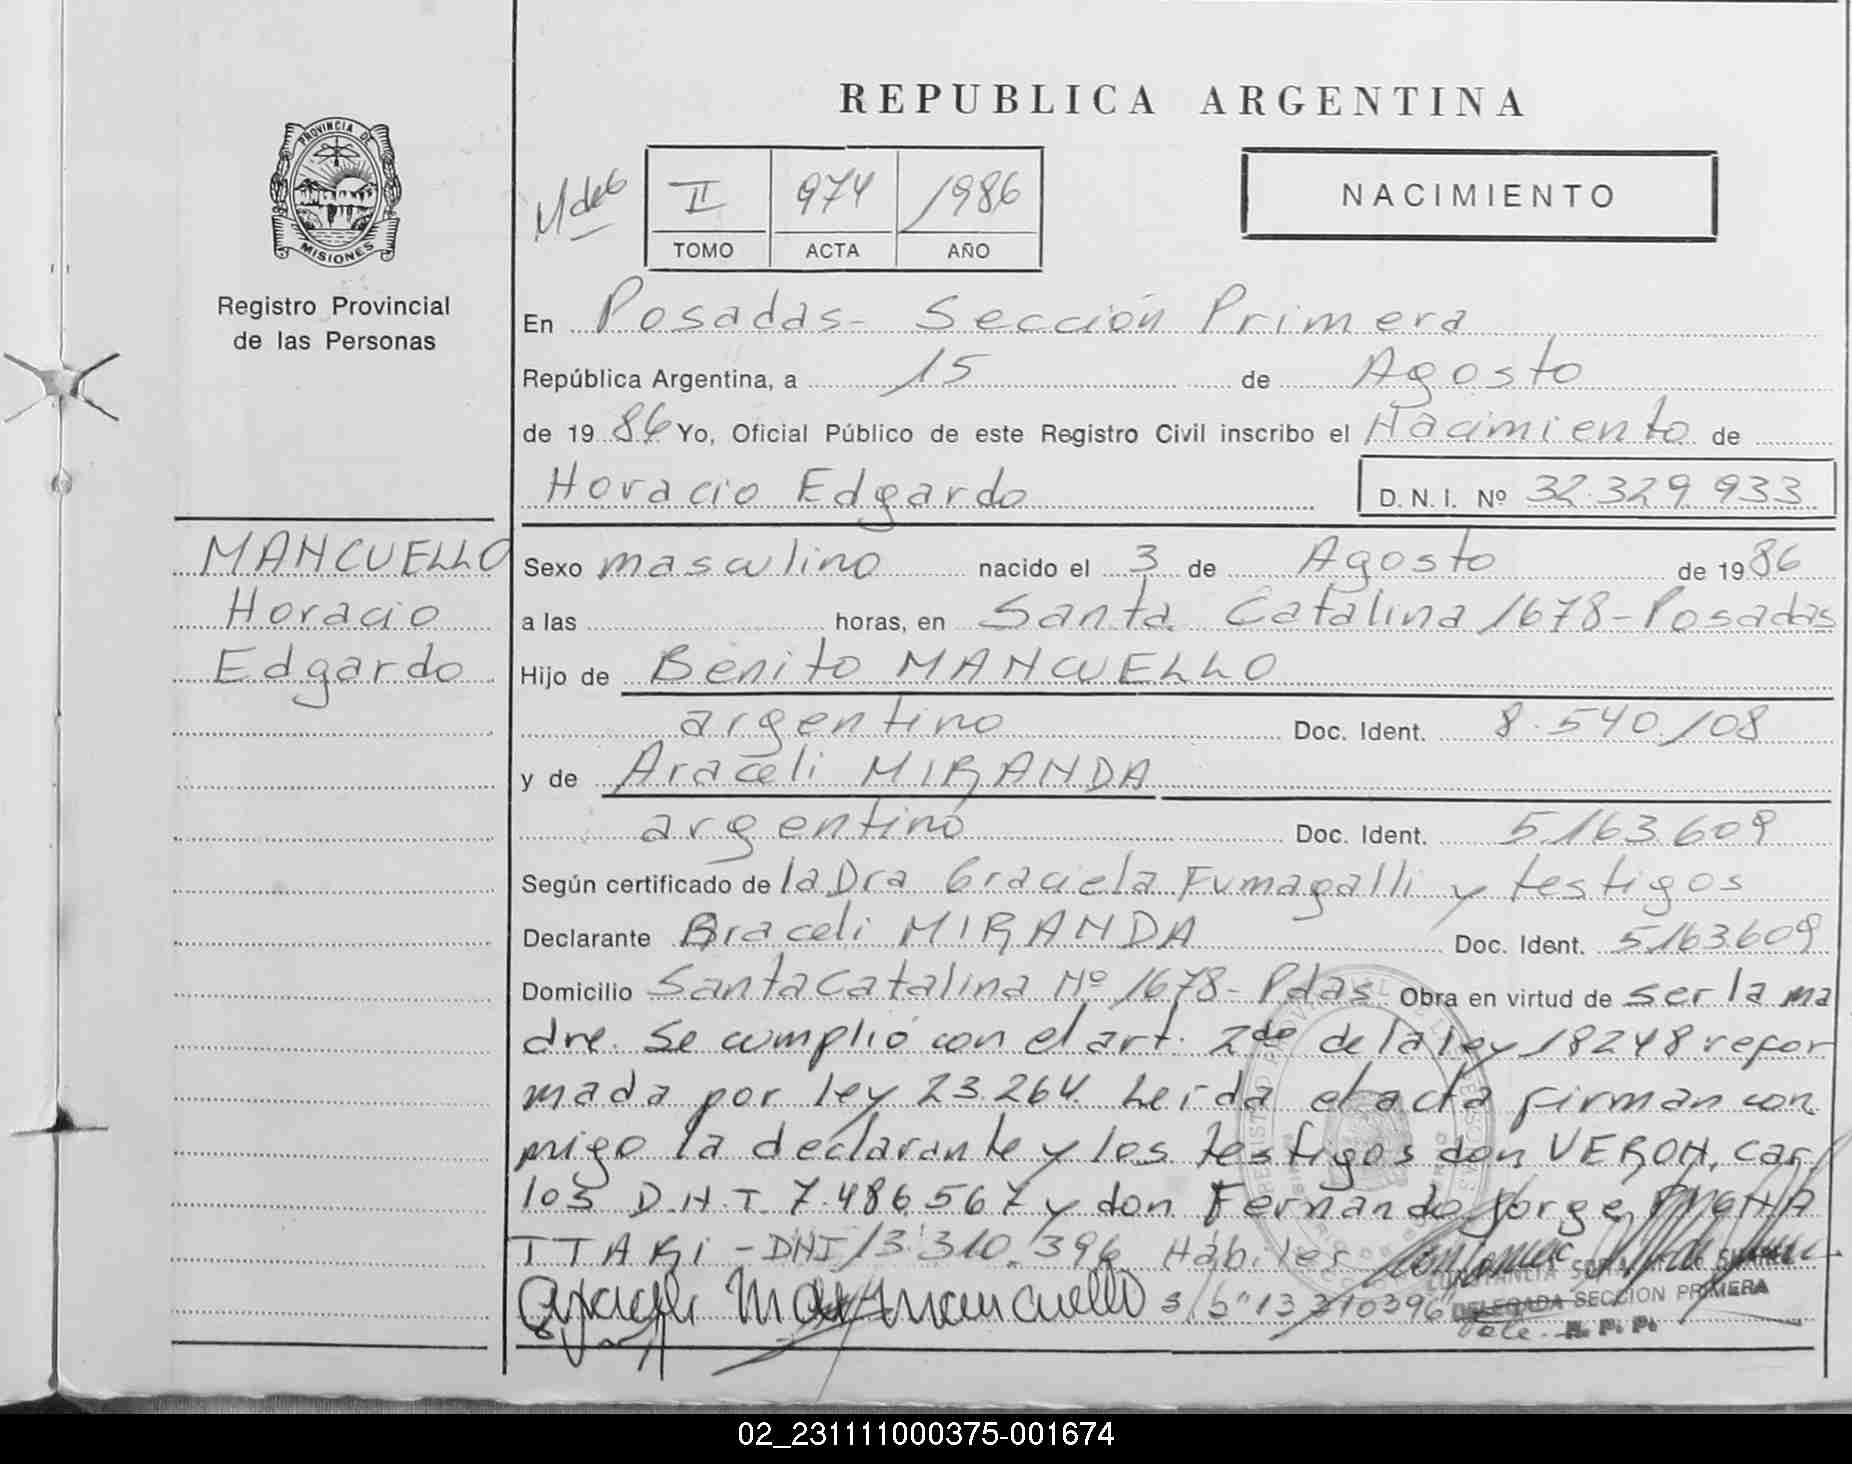 PROVINCIA DE
MISIONES
Registro Provincial
de las Personas
MANCUELLO
Horacio
Edgardo
REPUBLICA ARGENTINA
II 974 1986
TOMO ACTA AÑO
NACIMIENTO
En Posadas- Sección Primera
República Argentina, a 15 de Agosto
de 1986 Yo, Oficial Público de este Registro Civil inscribo el Nacimiento de
Horacio Edgardo D.N.I. Nº 32.329.933
Sexo masculino nacido el 3 de Agosto de 1986
a las horas, en Santa Catalina 1678-Posadas
Hijo de Benito MANCUELLO
argentino Doc. Ident. 8.540.108
y de Araceli MIRANDA
argentino Doc. Ident. 5.163.609
Según certificado de la Dra Graciela Fumagalli y testigos
Declarante Araceli MIRANDA Doc. Ident. 5.163.609
Domicilio Santa Catalina Nº 1678- Pdas Obra en virtud de ser la ma
dre. Se cumplió con el art. 2do de la ley 18248 refor
mada por ley 23.264. Leída el acta firman con
migo la declarante y los testigos don VERON, Car
los D.N.I. 7.486.567 y don Fernando Jorge
TTARi - DNI 13.310.396 Hábiles
Mancuello s/b "13310396" Vale.
DELEGADA SECCION PRIMERA
R. P. P.
02_231111000375-001674